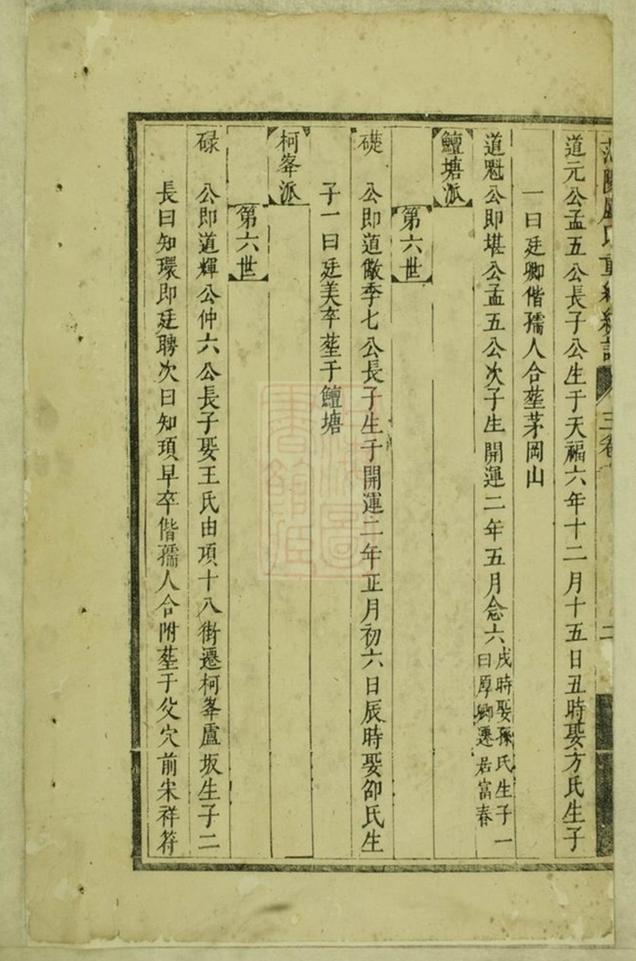 范陽盧氏重編統譜 三卷 二
道元公孟五公長子公生于天福六年十二月十五日丑時娶方氏生子
一曰廷卿偕孺人合塟茅岡山
道魁公即堪公孟五公次子生開運二年五月念六戌時娶孫氏生子一
曰厚卿遷居富春
鱣塘派
第六世
礎 公即道儆季七公長子生于開運二年正月初六日辰時娶邵氏生
子一曰廷美卒塟于鱣塘
柯峯派
第六世
碌 公即道輝公仲六公長子娶王氏由項十八街遷柯峯盧坂生子二
長曰知環即廷聘次曰知頊早卒偕孺人合附塟于父穴前宋祥符